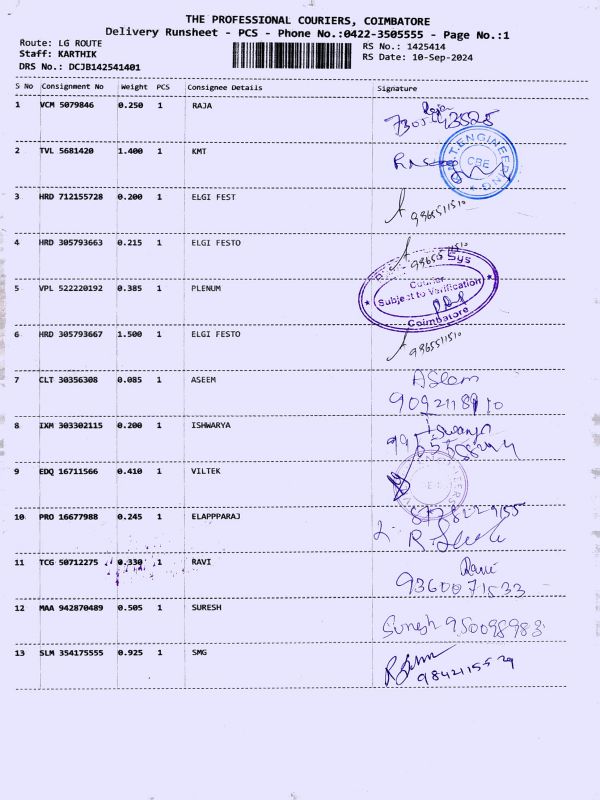 THE PROFESSIONAL COURIERS, COIMBATORE
Delivery Runsheet - PCS - Phone No.:0422-3505555 - Page No.:1
Route: LG ROUTE
Staff: KARTHIK
DRS No.: DCJB142541401
RS No.: 1425414
RS Date: 10-Sep-2024
S No Consignment No Weight PCS Consignee Details Signature
1 VCM 5079846 0.250 1 RAJA Raja
2 TVL 5681420 1.400 1 KMT
ENGINEERING
CBE
3 HRD 712155728 0.200 1 ELGI FEST 9865511510
4 HRD 305793663 0.215 1 ELGI FESTO 9865511510
5 VPL 522220192 0.385 1 PLENUM
Sys
Courier
Subject to Verification
Coimbatore
6 HRD 305793667 1.500 1 ELGI FESTO 9865511510
7 CLT 30356308 0.085 1 ASEEM ASeem
8 IXM 303302115 0.200 1 ISHWARYA
9 EDQ 16711566 0.410 1 VILTEK
10 PRO 16677988 0.245 1 ELAPPPARAJ
11 TCG 50712275 0.330 1 RAVI Ravi
9360071533
12 MAA 942870489 0.505 1 SURESH Suresh 950098983
13 SLM 354175555 0.925 1 SMG
9842115529